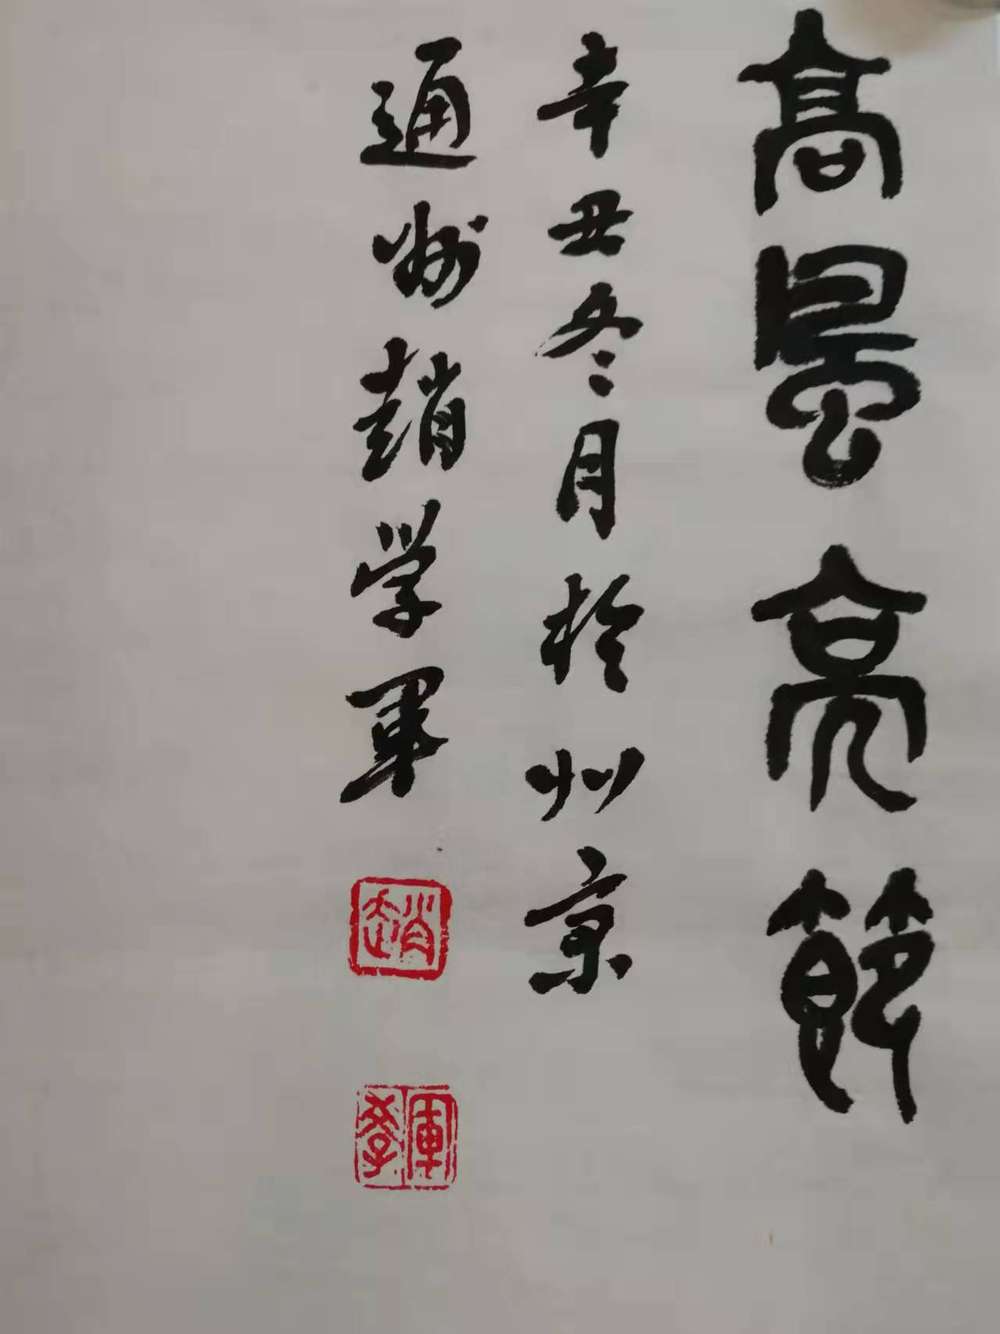 高風亮節
辛丑冬月於北京
通州趙学軍
趙
學軍